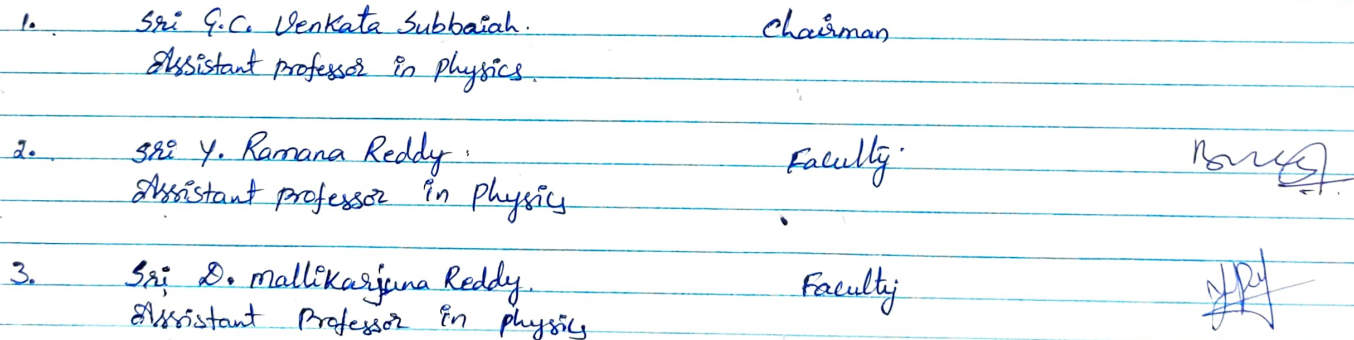 1. Sri G.C. Venkata Subbaiah. Chairman
Assistant professor in physics.
2. Sri Y. Ramana Reddy. Faculty
Assistant professor in Physics
3. Sri D. Mallikarjuna Reddy. Faculty
Assistant Professor in physics